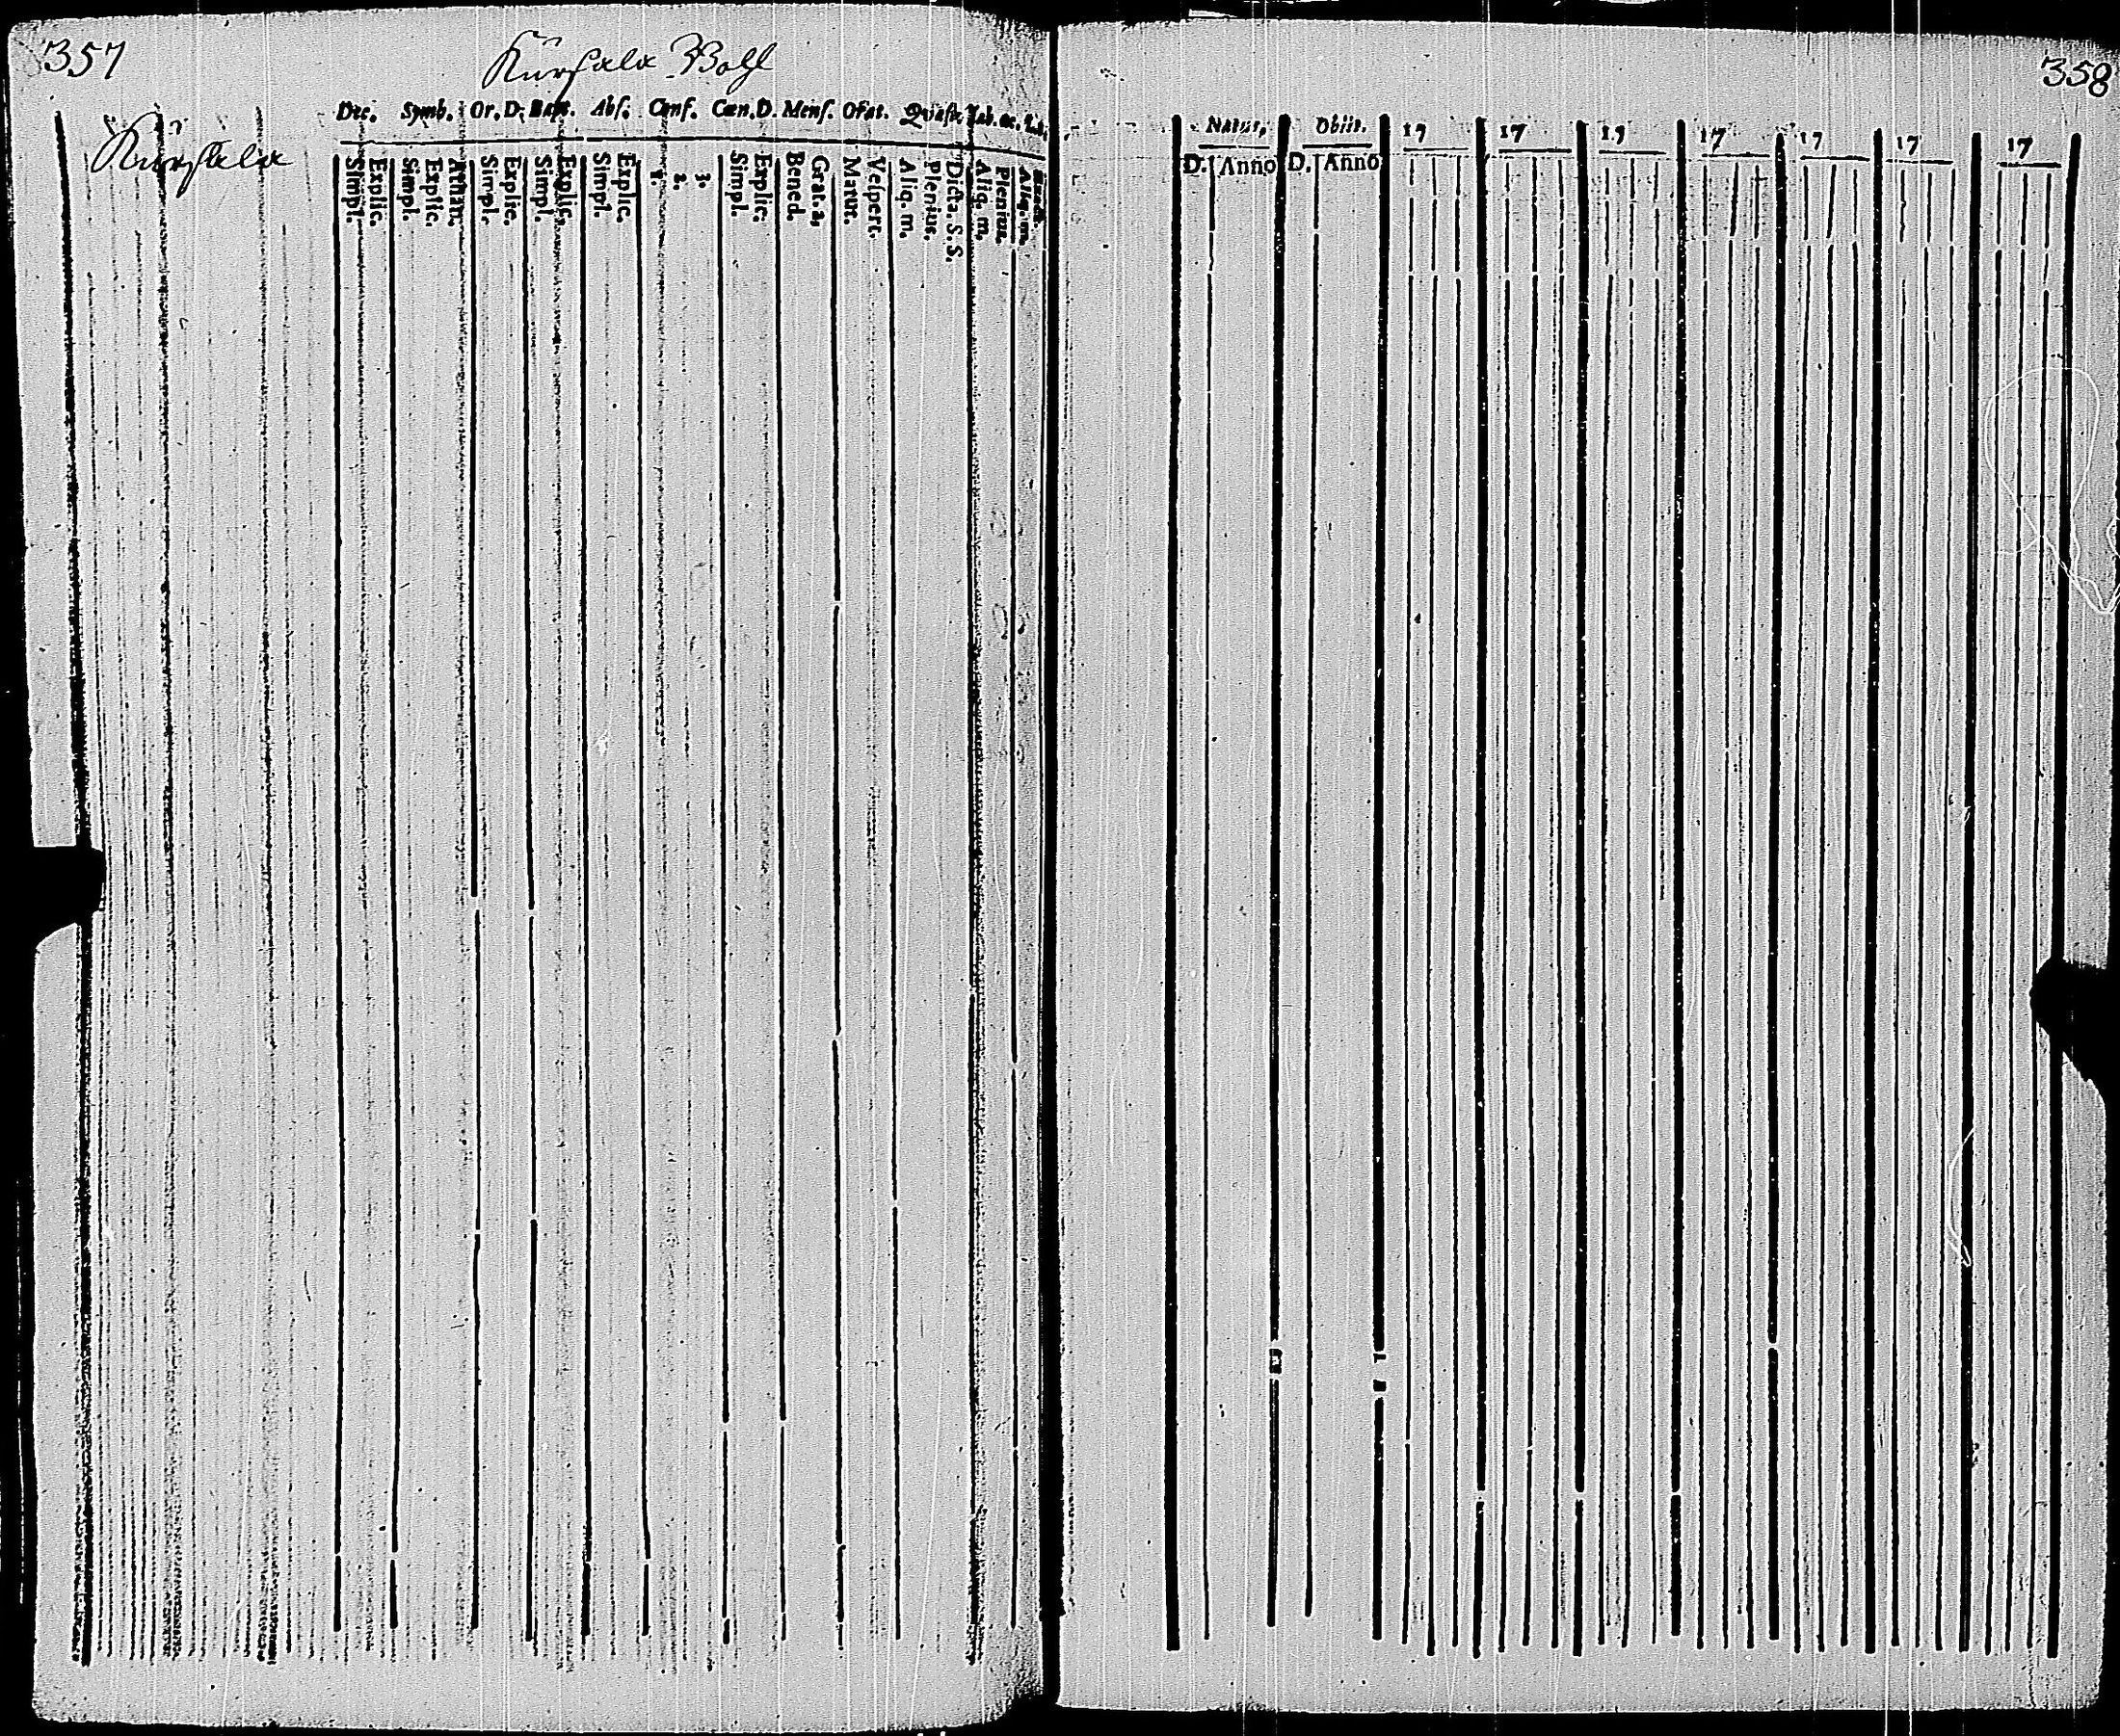 357
Kürsala Bohl
358
Dec. Symb. Or. D. Bapt. Abs. Conf. Cœn. D. Mens. Orat. Quæst. Tab. œc.
Kürsala
Simpl. Explic. Simpl. Explic. Athan. Simpl. Explic. Simpl. Explic. Simpl. Explic. 1. 2. 3. Simpl. Explic. Bened. Grat. a. Matut. Vespert. Aliq. m. Plenius. Dicta. S.S. Aliq. m. Plenius. Aliq. m.
Natus, Obiit. 17 17 17 17 17 17 17
D. Anno D. Anno